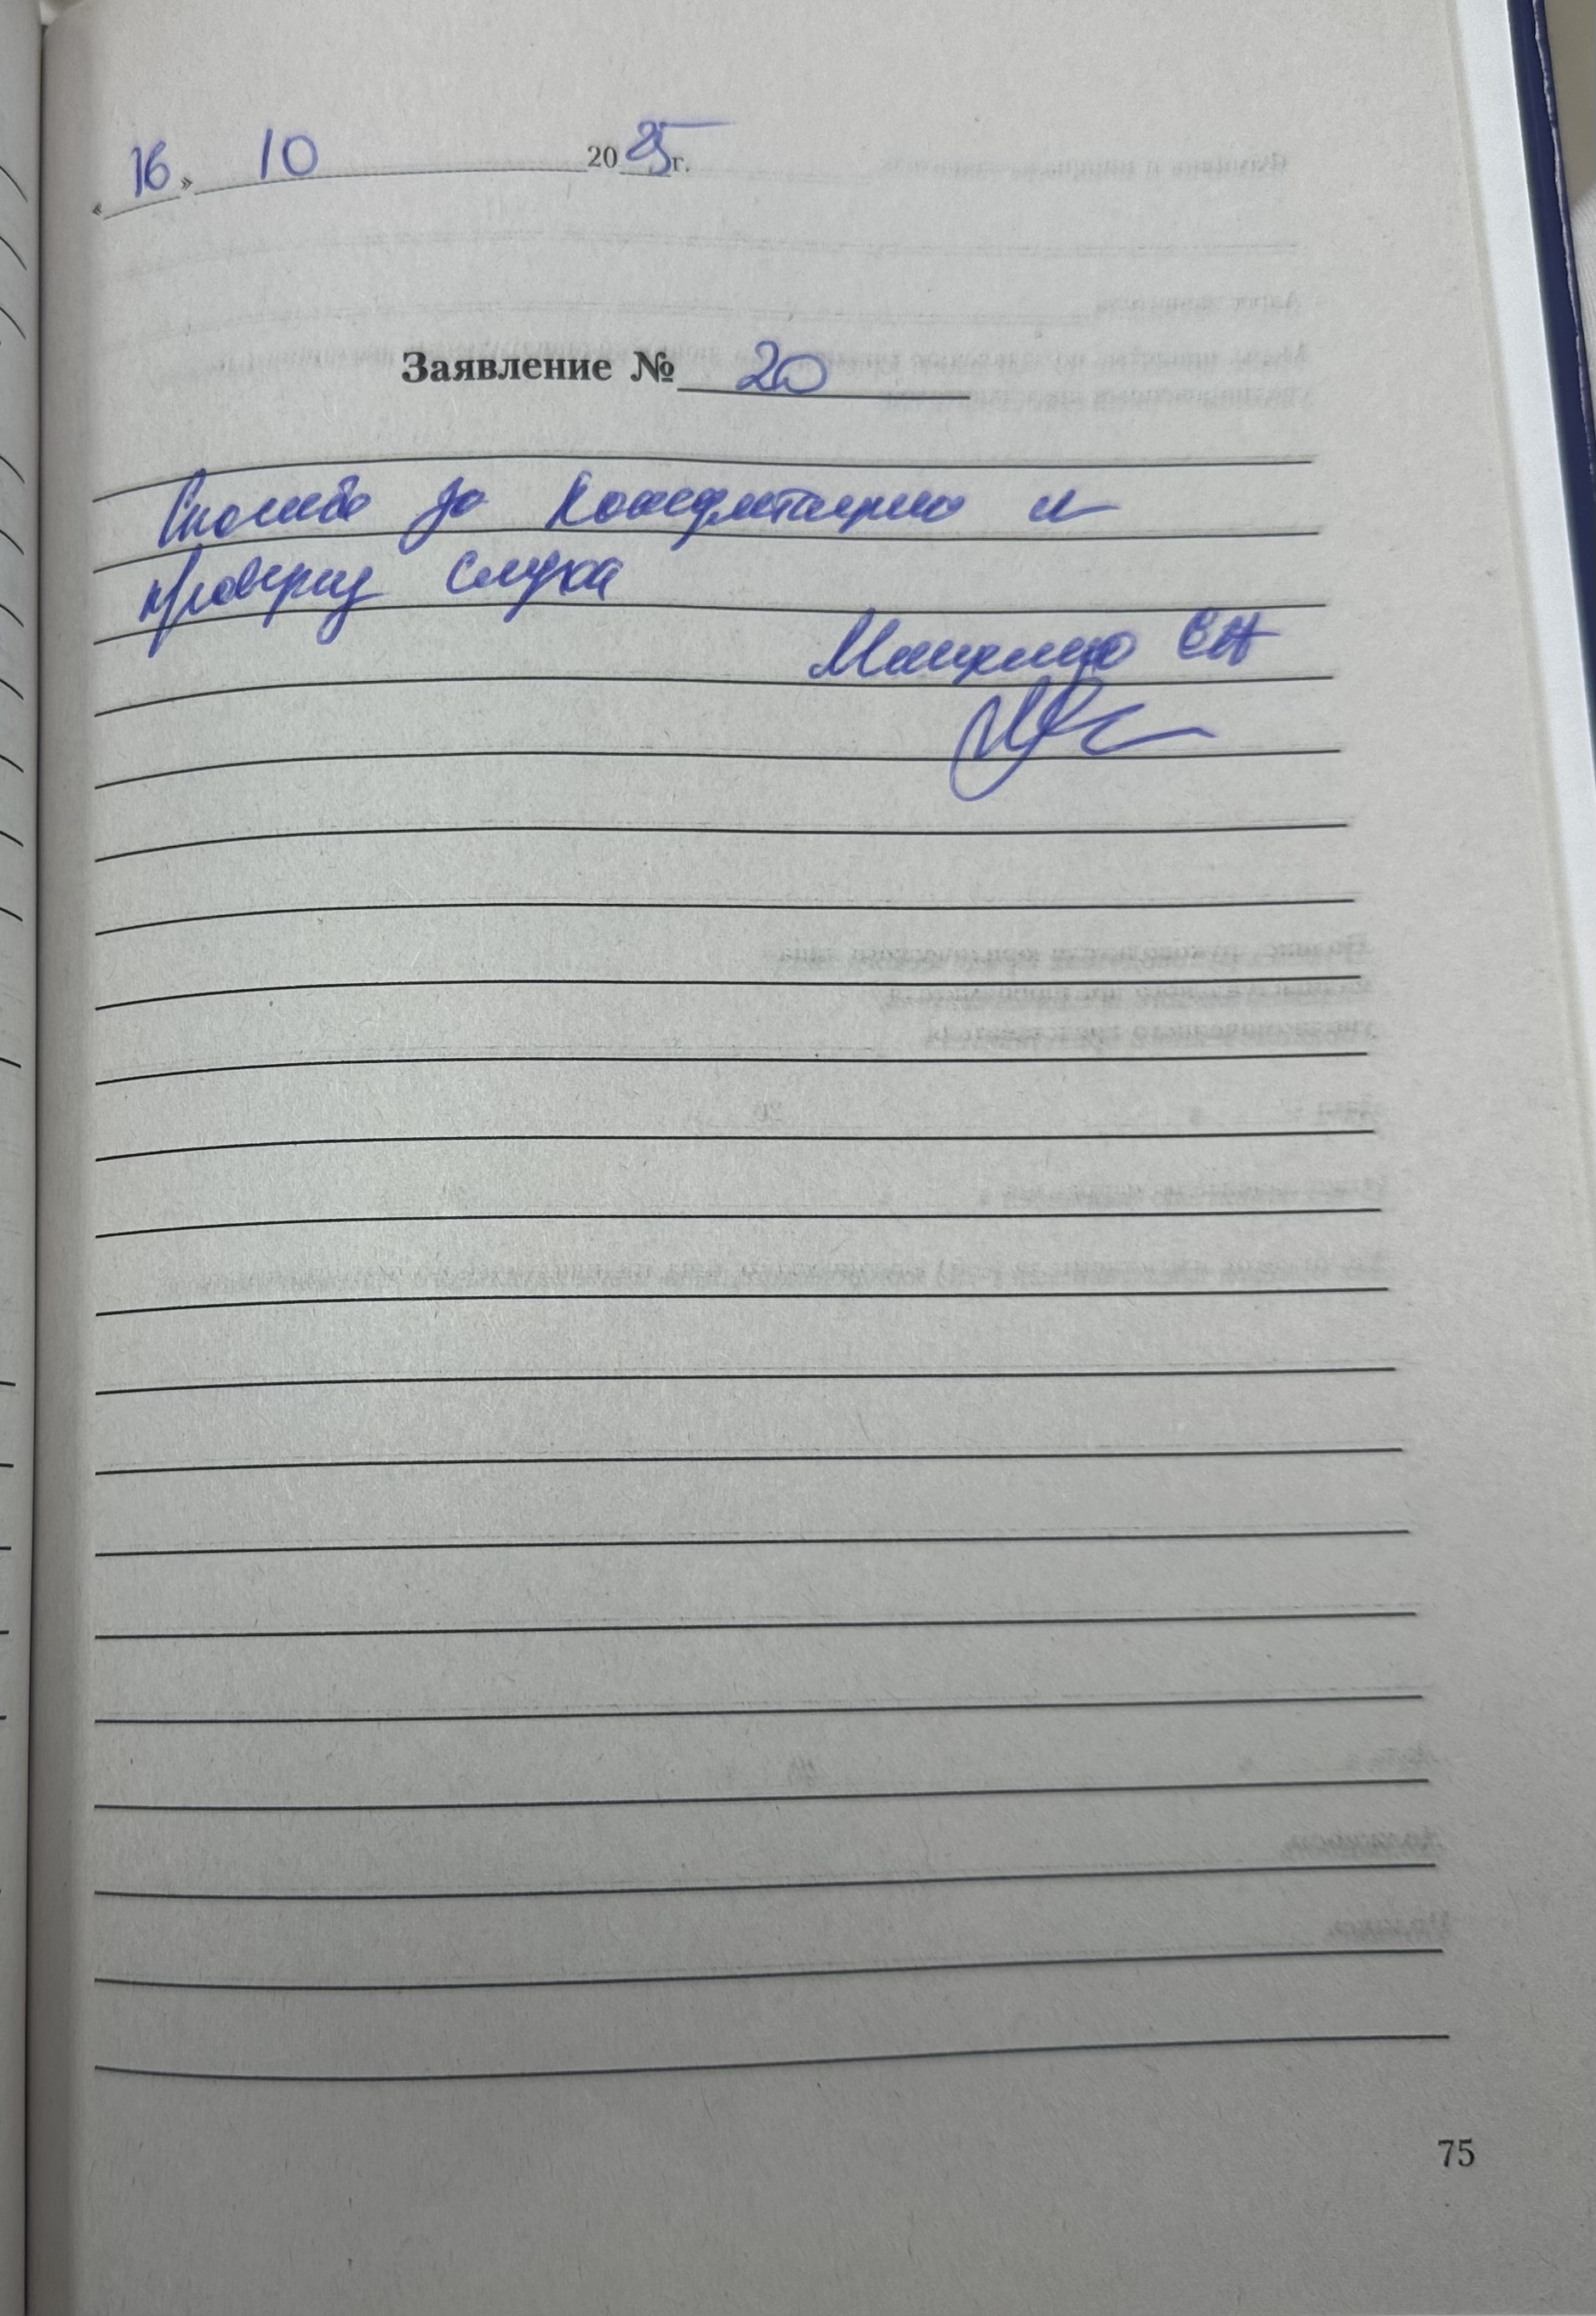 « 16 » 10 20 25 г.
Заявление № 20
Спасибо за консультацию и
проверку слуха
СН
75